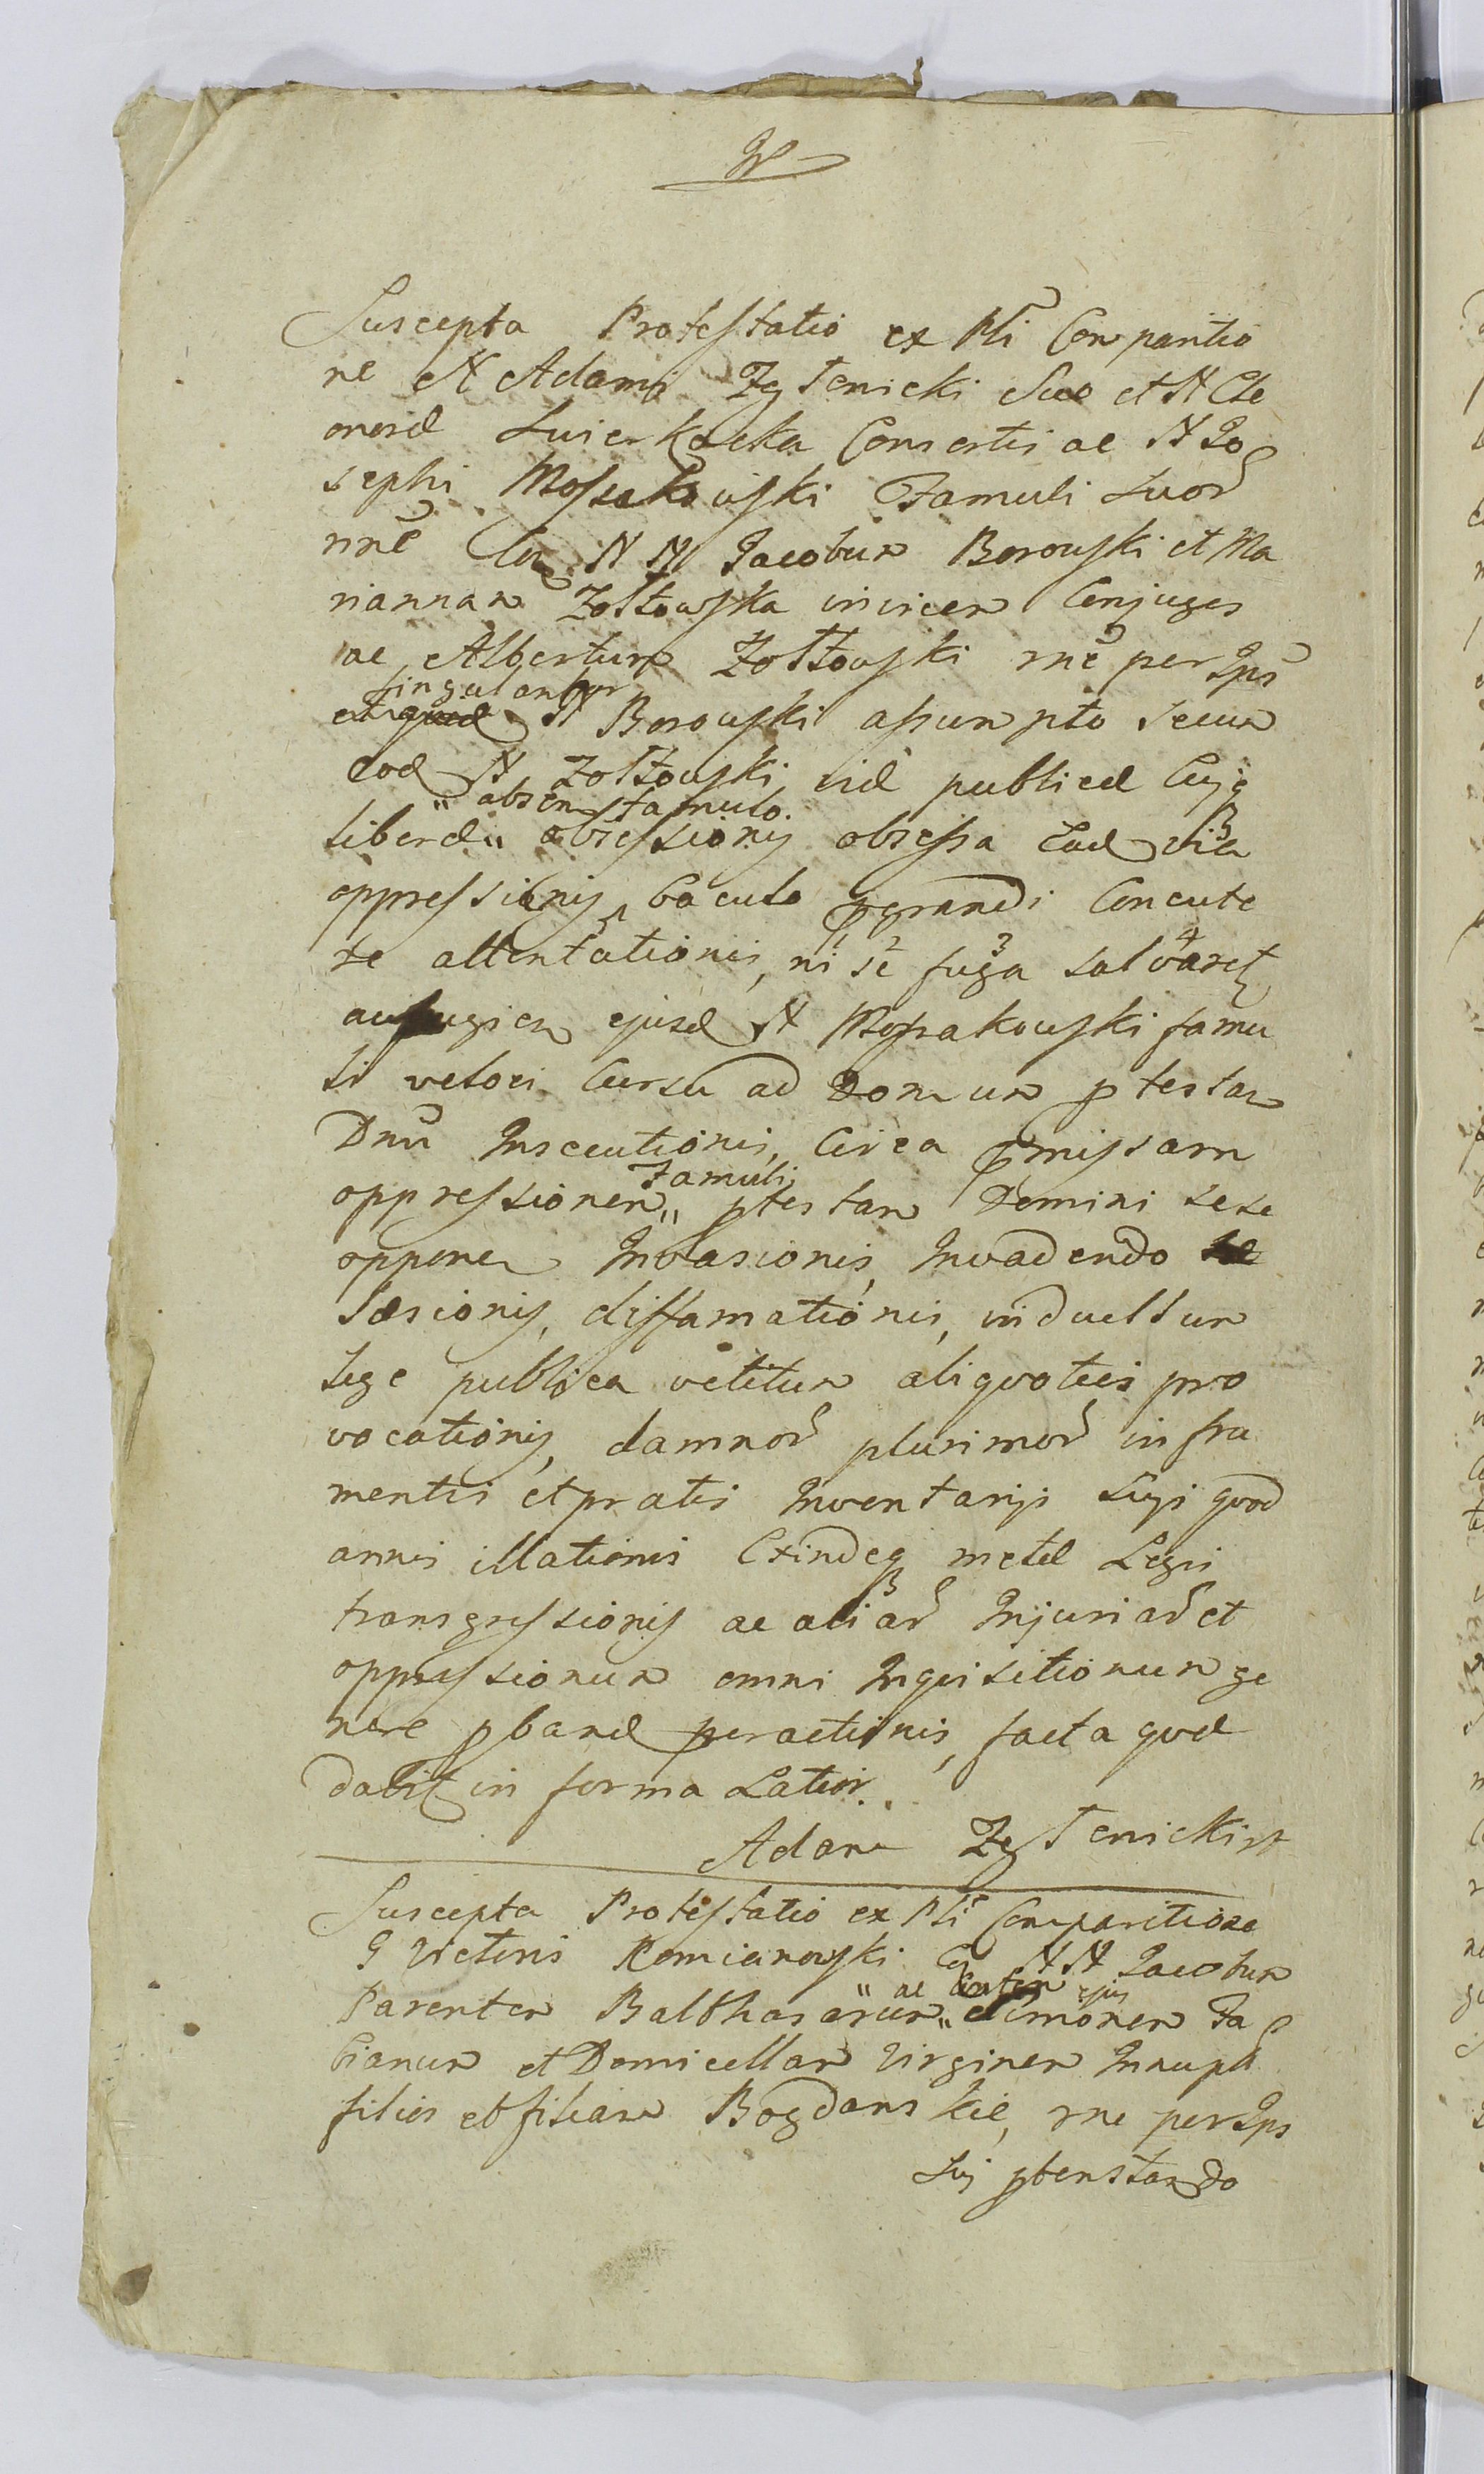 Suscepta Protestatio ex Pli Comparitio
ne N Adami Zystenicki Suo et N Ele
onoræ Swierkacka Consortis ac N Jo
sephi Mossakowski Famuli Suor
nnē Coz N N Jacobum Borowski et Ma
riannam Zołtowska invicem Conjuges
ac Albertum Zołtowski rnē per Ips
singulariter
N Borowski assumpto secum
eod N Zołtowski viæ publicæ Cujq
absen famulo
liberæ obsessionis obsessa Ead via
oppressionis, baculo pgrandi Concute
re attentationis, ni se fuga salvaret
aufugien ejusd N Mossakowski famu
li veloci Cursu ad Domum ptestan
Dnū Insecutionis, Circa pmissam
Famuli
oppressionem ptestan Domini sese
opponen Invasionis, Invadendo
Læsionis, diffamationis, in duellum
lege publica vetitum aliquoties pro
vocationis, damnor plurimor in fru
mentis et pratis Inventarijs suis quod
annis illationis Exindeq metæ Legis
transgressionis ac aliar Injuriar et
oppressionum omni Inquisitionum ge
nere pband peractionis, facta quæ
dabit in forma Latior.
Adam Zystenicki
Suscepta Protestatio ex Pli Comparitione
G Victoris Romianowski Coz NN Jacobum
ac ejus
Parentem Balthasarum Simonem Fa
bianum et Domicellam Virginem Innupt
filios et filiam Bogdanskie, rne per Ips
Sui pbenstando